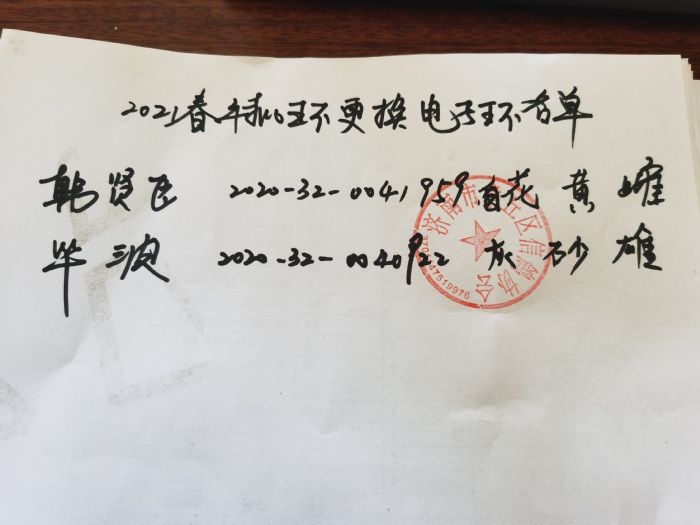 2021春 环更换电子环名单
韩贤臣 2020-32-0041959 白花 黄 雌
毕波 2020-32-0040922 灰 砂 雄
济南市 丘区信鸽协会